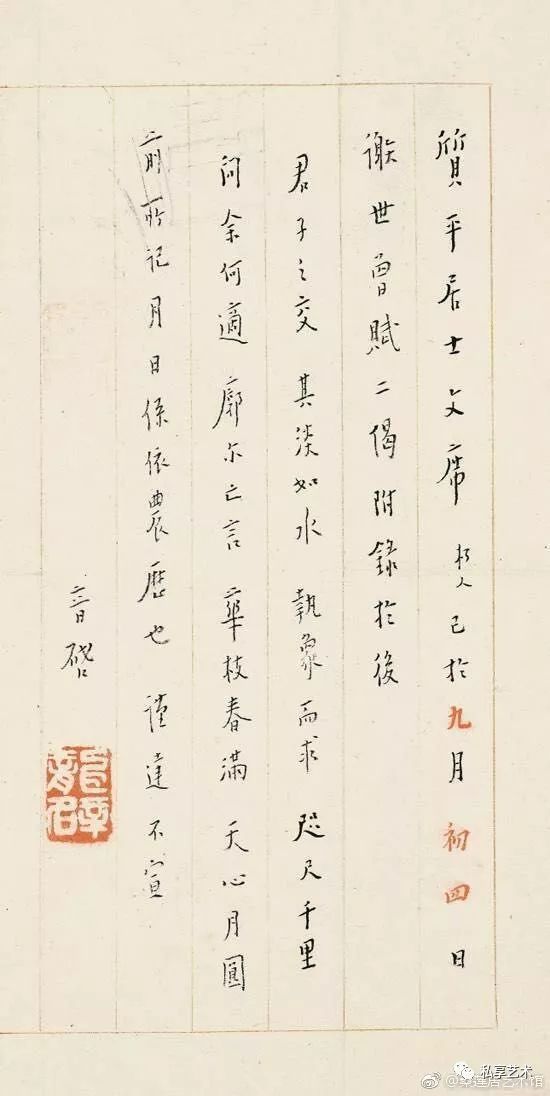 質平居士文席 朽人已於九月初四日
謝世曾賦二偈附錄於後
君子之交 其淡如水 執象而求 咫尺千里
問余何適 廓尔亡言 華枝春滿 天心月圓
前所記月日係依農歷也 謹達不宣
音啓
私享艺术